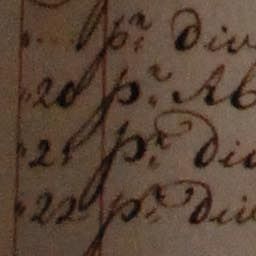 pr. div
20 pr. Ab
21 pr. div
22 pr. div